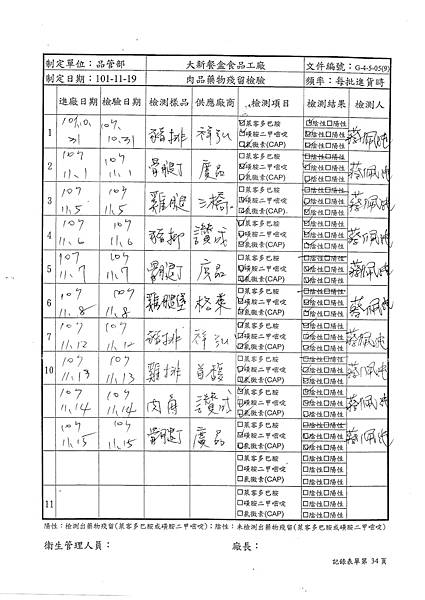 制定單位：品管部 大新餐盒食品工廠 文件編號：G-4-5-05(9)
制定日期：101-11-19 肉品藥物殘留檢驗 頻率：每批進貨時
進廠日期 檢驗日期 檢測樣品 供應廠商 檢測項目 檢測結果 檢測人
1 107.10.31 107.10.31 豬排 祥弘 ☑萊客多巴胺 ☑陰性☐陽性
☑磺胺二甲嘧啶 ☑陰性☐陽性
☐氯黴素(CAP) ☐陰性☐陽性
2 107 11.1 107 11.1 骨腿丁 廣品 ☐萊客多巴胺 ☐陰性☐陽性
☑磺胺二甲嘧啶 ☑陰性☐陽性
☑氯黴素(CAP) ☑陰性☐陽性
3 107 11.5 107 11.5 雞腿 ☐萊客多巴胺 ☐陰性☐陽性
☑磺胺二甲嘧啶 ☑陰性☐陽性
☑氯黴素(CAP) ☑陰性☐陽性
4 107 11.6 107 11.6 豬柳 讚成 ☑萊客多巴胺 ☑陰性☐陽性
☑磺胺二甲嘧啶 ☑陰性☐陽性
☐氯黴素(CAP) ☐陰性☐陽性
5 107 11.7 107 11.7 骨腿丁 廣品 ☐萊客多巴胺 ☐陰性☐陽性
☑磺胺二甲嘧啶 ☑陰性☐陽性
☑氯黴素(CAP) ☑陰性☐陽性
6 107 11.8 107 11.8 雞腿堡 ☐萊客多巴胺 ☐陰性☐陽性
☑磺胺二甲嘧啶 ☑陰性☐陽性
☑氯黴素(CAP) ☑陰性☐陽性
7 107 11.12 107 11.12 豬排 祥弘 ☑萊客多巴胺 ☑陰性☐陽性
☑磺胺二甲嘧啶 ☑陰性☐陽性
☐氯黴素(CAP) ☐陰性☐陽性
10 107 11.13 107 11.13 雞排 ☐萊客多巴胺 ☐陰性☐陽性
☑磺胺二甲嘧啶 ☑陰性☐陽性
☑氯黴素(CAP) ☑陰性☐陽性
107 11.14 107 11.14 肉角 讚成 ☑萊客多巴胺 ☑陰性☐陽性
☑磺胺二甲嘧啶 ☑陰性☐陽性
☐氯黴素(CAP) ☐陰性☐陽性
107 11.15 107 11.15 骨腿丁 廣品 ☐萊客多巴胺 ☐陰性☐陽性
☑磺胺二甲嘧啶 ☑陰性☐陽性
☑氯黴素(CAP) ☑陰性☐陽性
☐萊客多巴胺 ☐陰性☐陽性
☐磺胺二甲嘧啶 ☐陰性☐陽性
☐氯黴素(CAP) ☐陰性☐陽性
11 ☐萊客多巴胺 ☐陰性☐陽性
☐磺胺二甲嘧啶 ☐陰性☐陽性
☐氯黴素(CAP) ☐陰性☐陽性
陽性：檢測出藥物殘留(萊客多巴胺或磺胺二甲嘧啶)；陰性：未檢測出藥物殘留(萊客多巴胺或磺胺二甲嘧啶)
衛生管理人員： 廠長：
記錄表單第 34 頁